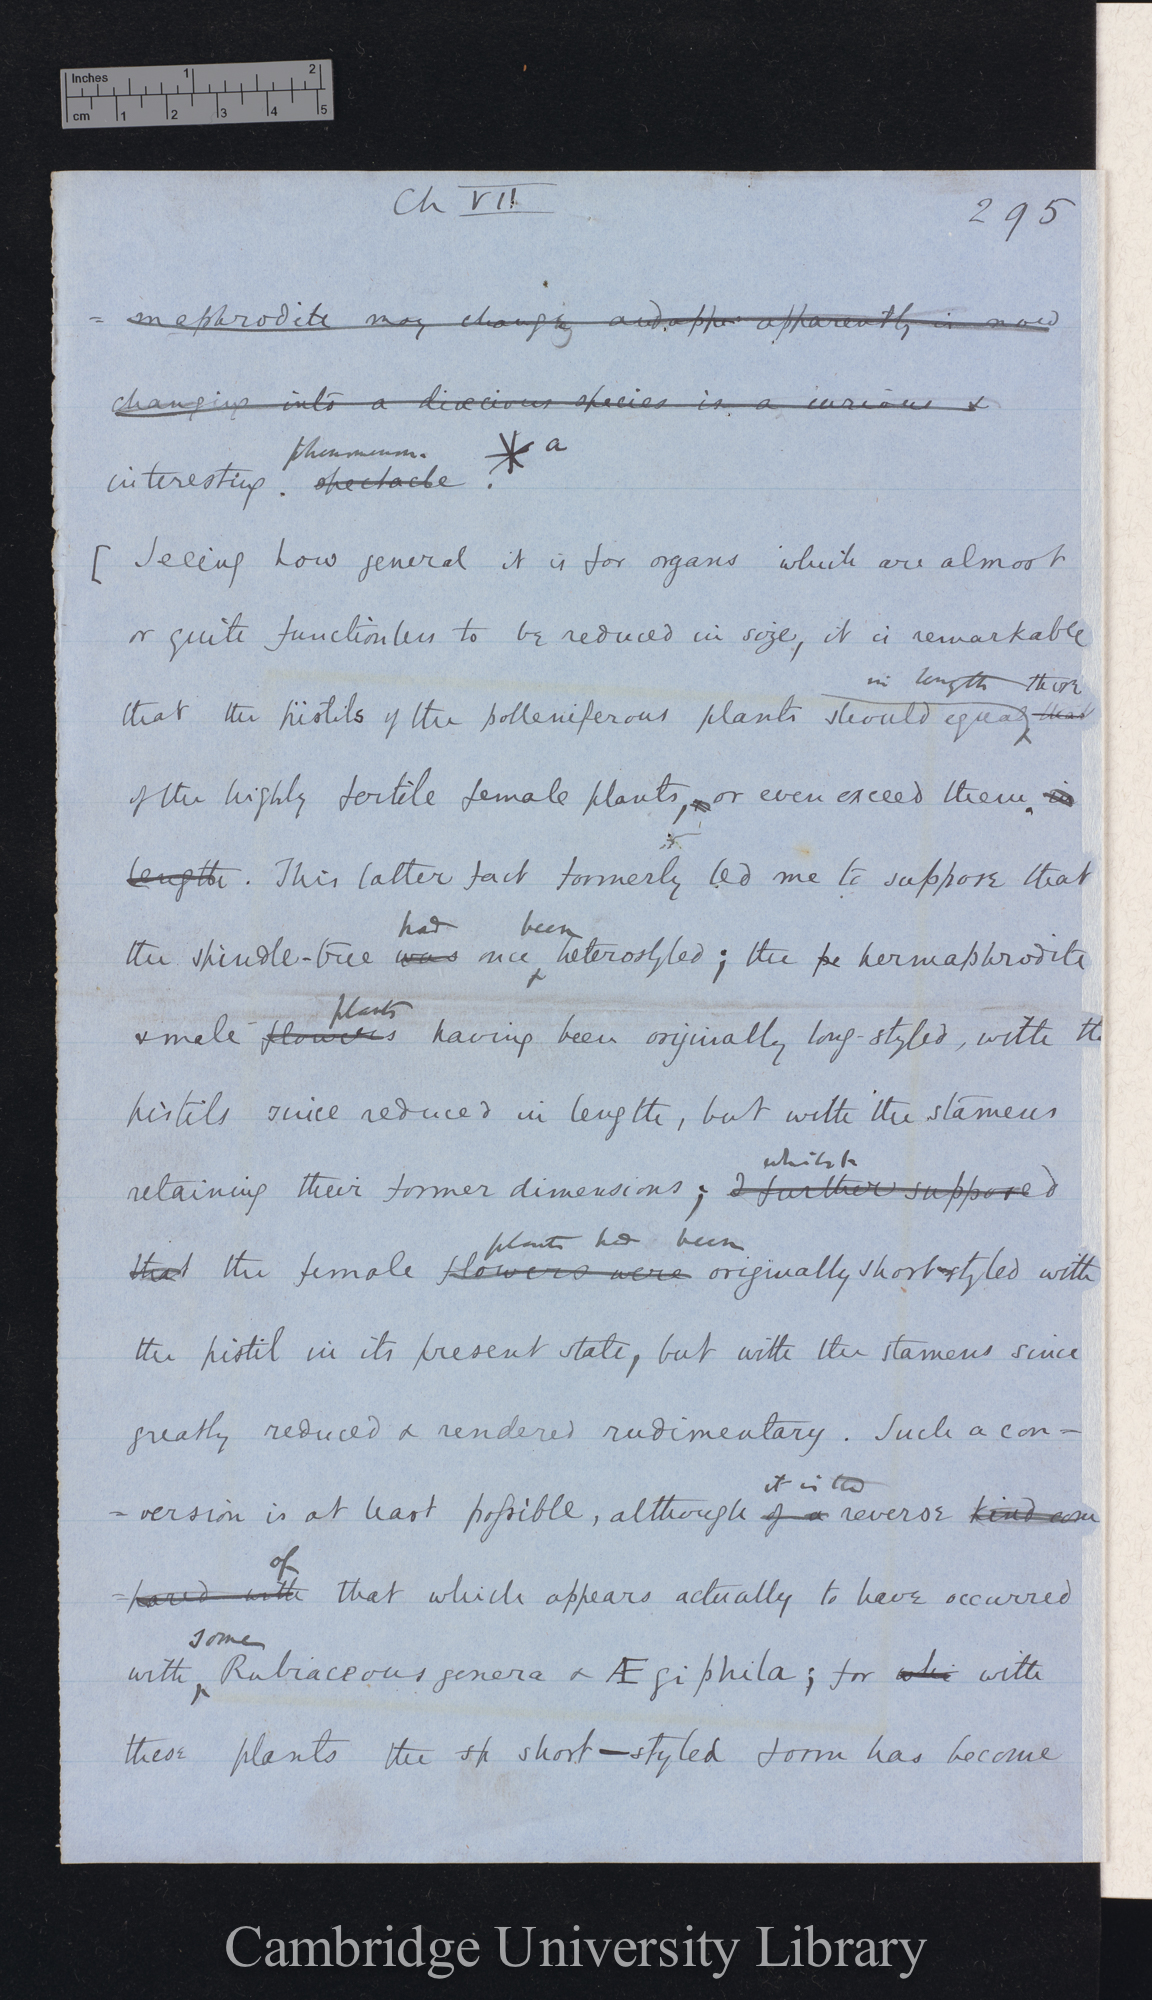 Inches 1 2
cm 1 2 3 4 5
Ch VII
295
= mephrodite may changing and appe apparently is now
changing into a diœcious species is a curious &
phenomenon. * a
interesting. spectacle.
[ Seeing how general it is for organs which are almost
or quite functionless to be reduced in size, it is remarkable
in length those
that the pistils of the polleniferous plants should equal that
of the highly fertile female plants, or even exceed them. in
length. This latter fact formerly led me to suppose that
had been
the spindle-tree was once heterostyled; the pe hermaphrodite
plants
& male flowers having been originally long-styled, with the
pistils since reduced in length, but with the stamens
whilst
retaining their former dimensions; I further supposed
plants had been
that the female flowers were originally short-styled with
the pistil in its present state, but with the stamens since
greatly reduced & rendered rudimentary. Such a con-
it is the
=version is at least possible, although of a reverse kind com
of
=pared with that which appears actually to have occurred
some
with Rubiaceous genera & Ægiphila; for whi with
these plants the sh short-styled form has become
Cambridge University Library